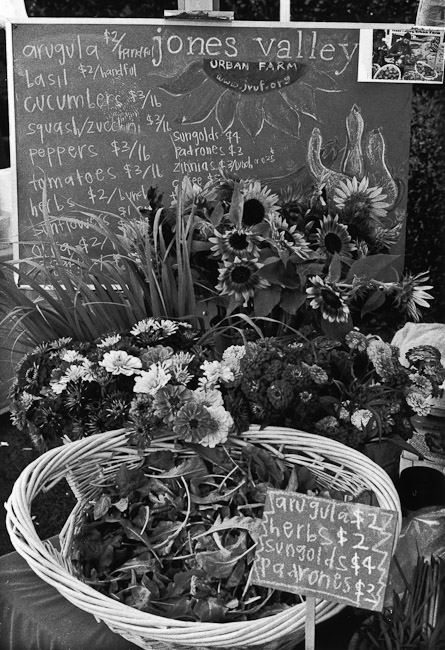 jones valley
URBAN FARM
www.jvuf.org
arugula $2/handful
basil $2/handful
cucumbers $3/lb
squash/zucchini $3/lb
peppers $3/lb
tomatoes $3/lb
herbs $2/bunch
sunflowers
okra
sungolds $4
padrones $2
zinnias $3/bunch
arugula $2
herbs $2
sungolds $4
padrones $2